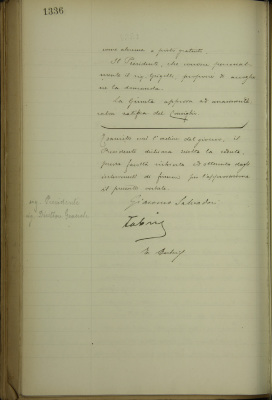 1336
Il Presidente, che conosce personal-
mente il sig. Grigolli, propone di accoglie-
re la domanda.
La Giunta approva ad unanimità
salvo ratifica del Consiglio.
Esaurito così l'ordine del giorno, il
Presidente dichiara sciolta la seduta,
previa facoltà richiesta ed ottenuta dagli
intervenuti di firmare per l'approvazione
il presente verbale.
sig. Presidente
sig. Direttore Generale
Giacomo Salvadori